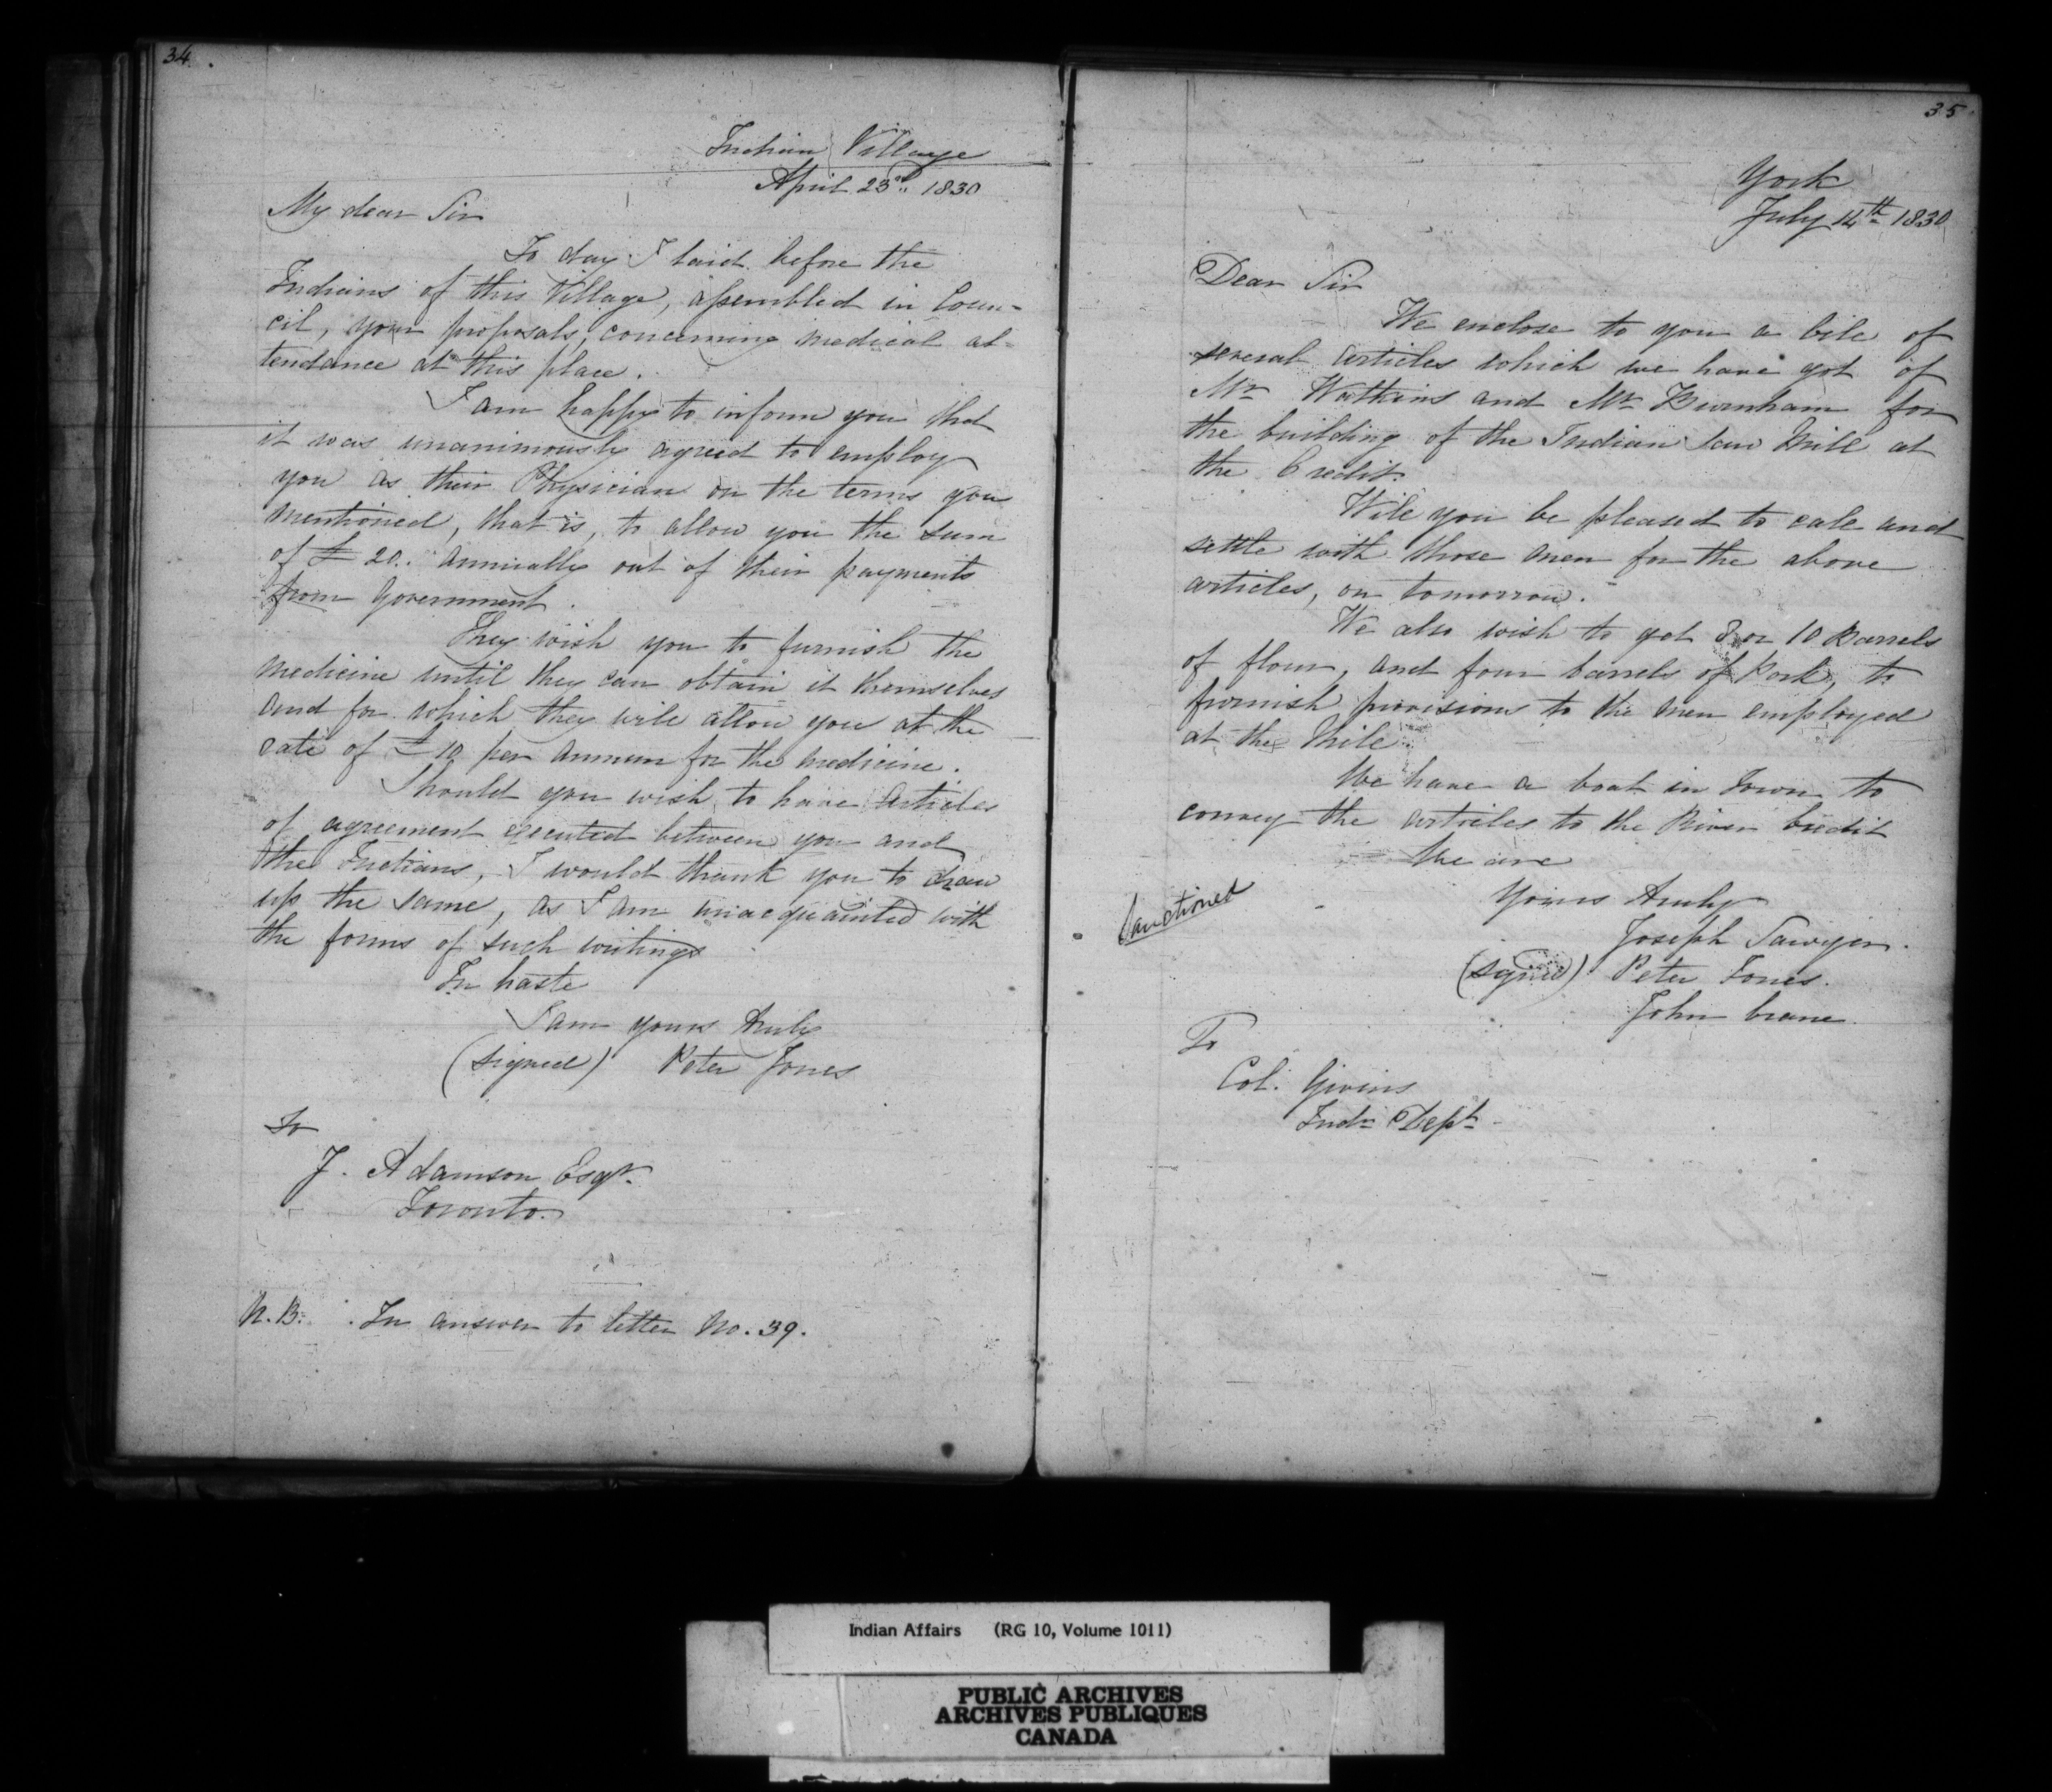 34.
Indian Village
April 23rd. 1830
My dear Sir
To day I laid before the
Indians of this Village, assembled in Coun-
cil, your proposals, concerning medical at-
tendance at this place.
I am happy to inform you that
it was unanimously agreed to employ
you as their Physician on the terms you
mentioned, that is, to allow you the sum
of £ 20.. annually out of their payments
from Government.
They wish you to furnish the
medicine until they can obtain it themselves
and for which they will allow you at the
rate of £ 10 per annum for the medicine.
Should you wish to have articles
of agreement executed between you and
the Indians, I would thank you to draw
up the same, as I am unacquainted with
the forms of such writings
In haste
I am yours truly
(signed) Peter Jones
To
J. Adamson Esqr.
Toronto.
N.B. In answer to letter No. 39.
35
York
July 14th 1830
Dear Sir
We enclose to you a bill of
several articles which we have got of
Mr Watkins and Mr Burnham for
the building of the Indian Saw Mill at
the Credit.
Will you be pleased to call and
settle with those men for the above
articles, on tomorrow.
We also wish to get 8 or 10 Barrels
of flour, and four barrels of Pork, to
furnish provisions to the men employed
at the Mill.
We have a boat in Town to
convey the articles to the River Credit
We are
Yours truly
Sanctioned
Joseph Sawyer.
(signed) Peter Jones.
John Crane
To
Col. Givins
Indn Dept.
Indian Affairs (RG 10, Volume 1011)
PUBLIC ARCHIVES
ARCHIVES PUBLIQUES
CANADA